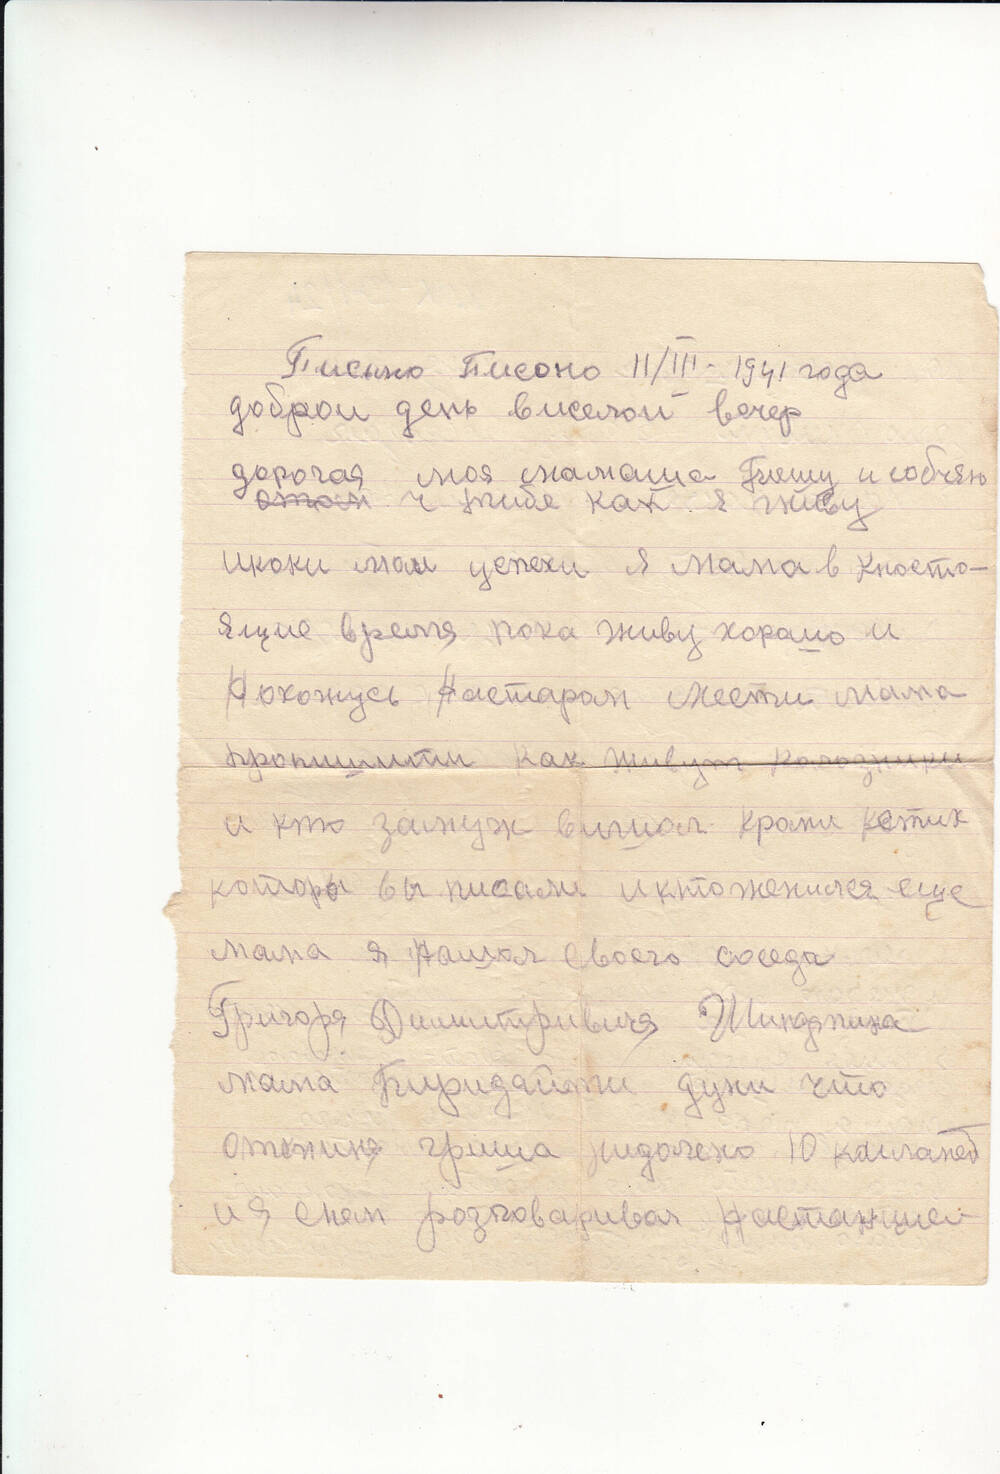 Писмо Писоно 11/III - 1941 года
доброи день виселой вечер
дорогая моя мамаша Пишу и собчяю
тибе как я живу
икоки мои успехи я мама в кносто-
ящие время пока живу хорашо и
Нохожусь Настаром мести мама
пропишити как живут колозники
и кто замуж вишол кроми котих
которы вы писали иктоженился еще
мама я нашол своего соседа
Григоря Димитривичя
мама Пиридайти дуни что
отминя гриша нидолеко 10 киламеб
ия сним розговаривал Настанции